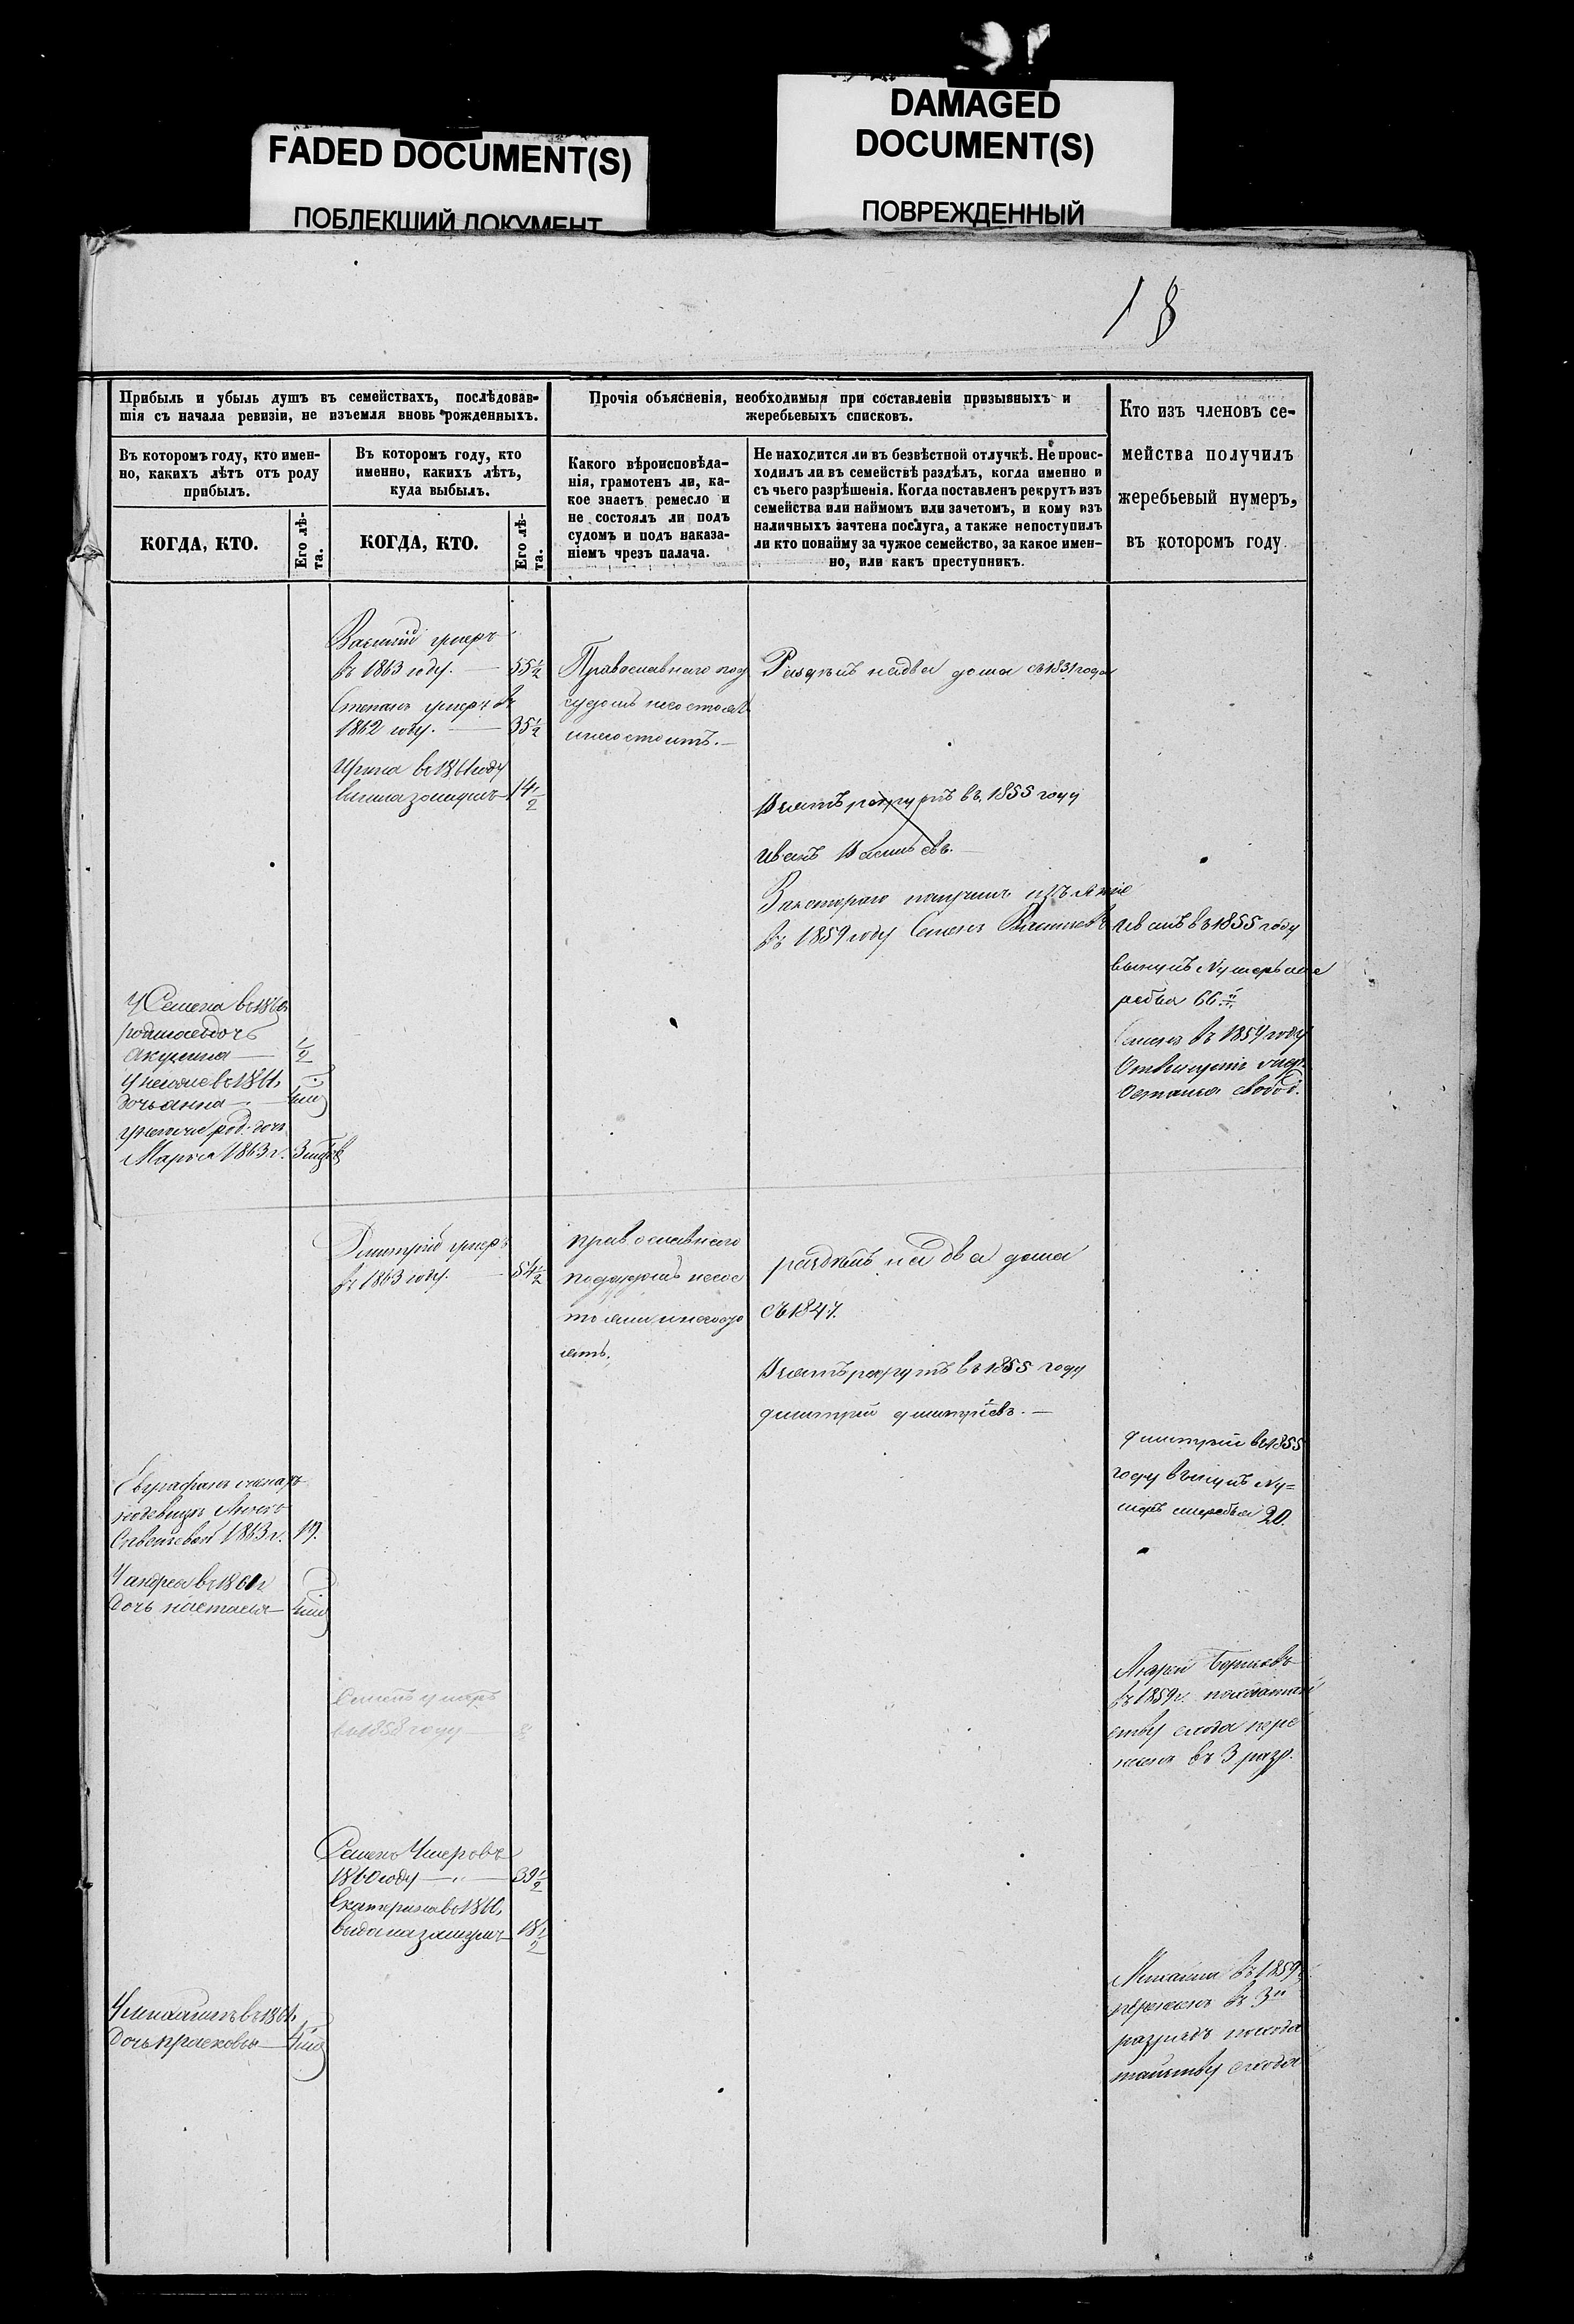 FADED DOCUMENT(S)
ПОБЛЕКШИЙ ДОКУМЕНТ
DAMAGED
DOCUMENT(S)
ПОВРЕЖДЕННЫЙ
18
Прибыль и убыль душъ въ семействахъ, послѣдовав-
шія съ начала ревизіи, не изъемля вновь рожденныхъ.
Въ которомъ году, кто имен-
но, какихъ лѣтъ отъ роду
прибылъ.
КОГДА, КТО.
Его лѣ-
та.
Въ которомъ году, кто
именно, какихъ лѣтъ,
куда выбылъ.
КОГДА, КТО.
Его лѣ-
та.
Прочія объясненія, необходимыя при составленіи призывныхъ и
жеребьевыхъ списковъ.
Какого вѣроисповѣда-
нія, грамотенъ ли, ка-
кое знаетъ ремесло и
не состоялъ ли подъ
судомъ и подъ наказа-
ніемъ чрезъ палача.
Не находится ли въ безвѣстной отлучкѣ. Не проис-
ходилъ ли въ семействѣ раздѣлъ, когда именно и
съ чьего разрѣшенія. Когда поставленъ рекрутъ изъ
семейства или наймомъ или зачетомъ, и кому изъ
наличныхъ зачтена послуга, а также непоступилъ
ли кто понайму за чужое семейство, за какое имен-
но, или какъ преступникъ.
Кто изъ членовъ се-
мейства получилъ
жеребьевый нумеръ,
въ которомъ году.
Василій умеръ
въ 1863 году. — 55½
Степанъ умеръ въ
1862 году. — 35½
Ирина въ 1861 году
14½
Православнаго под
судомъ несостоялъ
инесостоитъ. —
Раздѣлъ надва дома съ 1831 года
Взятъ рекрутъ въ 1855 году
Иванъ Васильевъ. —
Закотораго получилъ
въ 1859 году Семенъ Васильевъ
Иванъ въ 1855 году
вынулъ Нумеръ же
ребья 66й
Семенъ въ 1859 году
Остался свобод.
У Семена въ 1860
родилась дочь
Акулина — ½
въ 1861
дочь Анна —
род. дочь
Марья 1863 г. 3
Дмитрій умеръ
въ 1863 году. — 54½
православнаго
подсудомъ несос
тояли инесосто
ятъ.
раздѣлъ на два дома
съ 1847.
Взятъ рекрутъ въ 1855 году
Дмитрій Дмитріевъ. —
Дмитрій въ 1855
году вынулъ Ну=
меръ жеребья 20.
Евграфъ женатъ
надевицѣ
1863 г. 19.
У Андрея въ 1861 г
дочь Настасья —
умеръ
въ 1858 году —
Андрей Борисовъ
въ 1859 г. походатай
ству схода пере
несенъ въ 3 разр.
Семенъ Умеръ въ
1860 году — 39½
Екатерина въ 1860
выдана замужъ 18½
У Михаилы въ 1861
Дочь Прасковья —
Михаилъ въ 1859
перенесенъ въ 3й
разрядъ похода
тайству схода